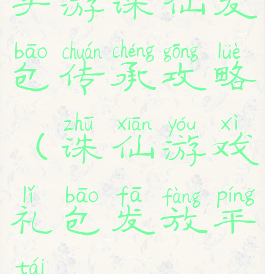 手游诛仙发
bāo chuán chéng gōng lüè
包传承攻略
zhū xiān yóu xì
（诛仙游戏
lǐ bāo fā fàng píng
礼包发放平
tái